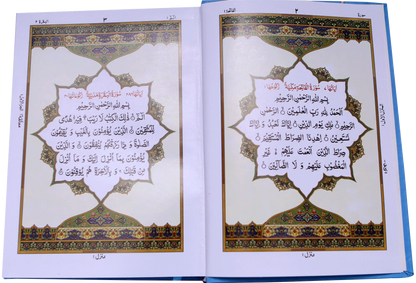 سورة ١
٢
الفاتحة ١
سُوْرَةُ الْفَاتِحَةِ مَكِّيَّةٌ
بِسْمِ اللّٰهِ الرَّحْمٰنِ الرَّحِيْمِ
اَلْحَمْدُ لِلّٰهِ رَبِّ الْعٰلَمِيْنَ ۝ الرَّحْمٰنِ
الرَّحِيْمِ ۝ مٰلِكِ يَوْمِ الدِّيْنِ ۝ اِيَّاكَ نَعْبُدُ وَ اِيَّاكَ
نَسْتَعِيْنُ ۝ اِهْدِنَا الصِّرَاطَ الْمُسْتَقِيْمَ ۝
صِرَاطَ الَّذِيْنَ اَنْعَمْتَ عَلَيْهِمْ ۙ غَيْرِ
الْمَغْضُوْبِ عَلَيْهِمْ وَ لَا الضَّآلِّيْنَ ۝
منزل ١
الٓمّٓ ١
٣
البقرة ٢
سُوْرَةُ الْبَقَرَةِ مَدَنِيَّةٌ
بِسْمِ اللّٰهِ الرَّحْمٰنِ الرَّحِيْمِ
الٓمّٓ ۝ ذٰلِكَ الْكِتٰبُ لَا رَيْبَ ۛ فِيْهِ ۛ هُدًى
لِّلْمُتَّقِيْنَ ۝ الَّذِيْنَ يُؤْمِنُوْنَ بِالْغَيْبِ وَ يُقِيْمُوْنَ
الصَّلٰوةَ وَ مِمَّا رَزَقْنٰهُمْ يُنْفِقُوْنَ ۝ وَ الَّذِيْنَ
يُؤْمِنُوْنَ بِمَاۤ اُنْزِلَ اِلَيْكَ وَ مَاۤ اُنْزِلَ
مِنْ قَبْلِكَ ۚ وَ بِالْاٰخِرَةِ هُمْ يُوْقِنُوْنَ ۝
منزل ١